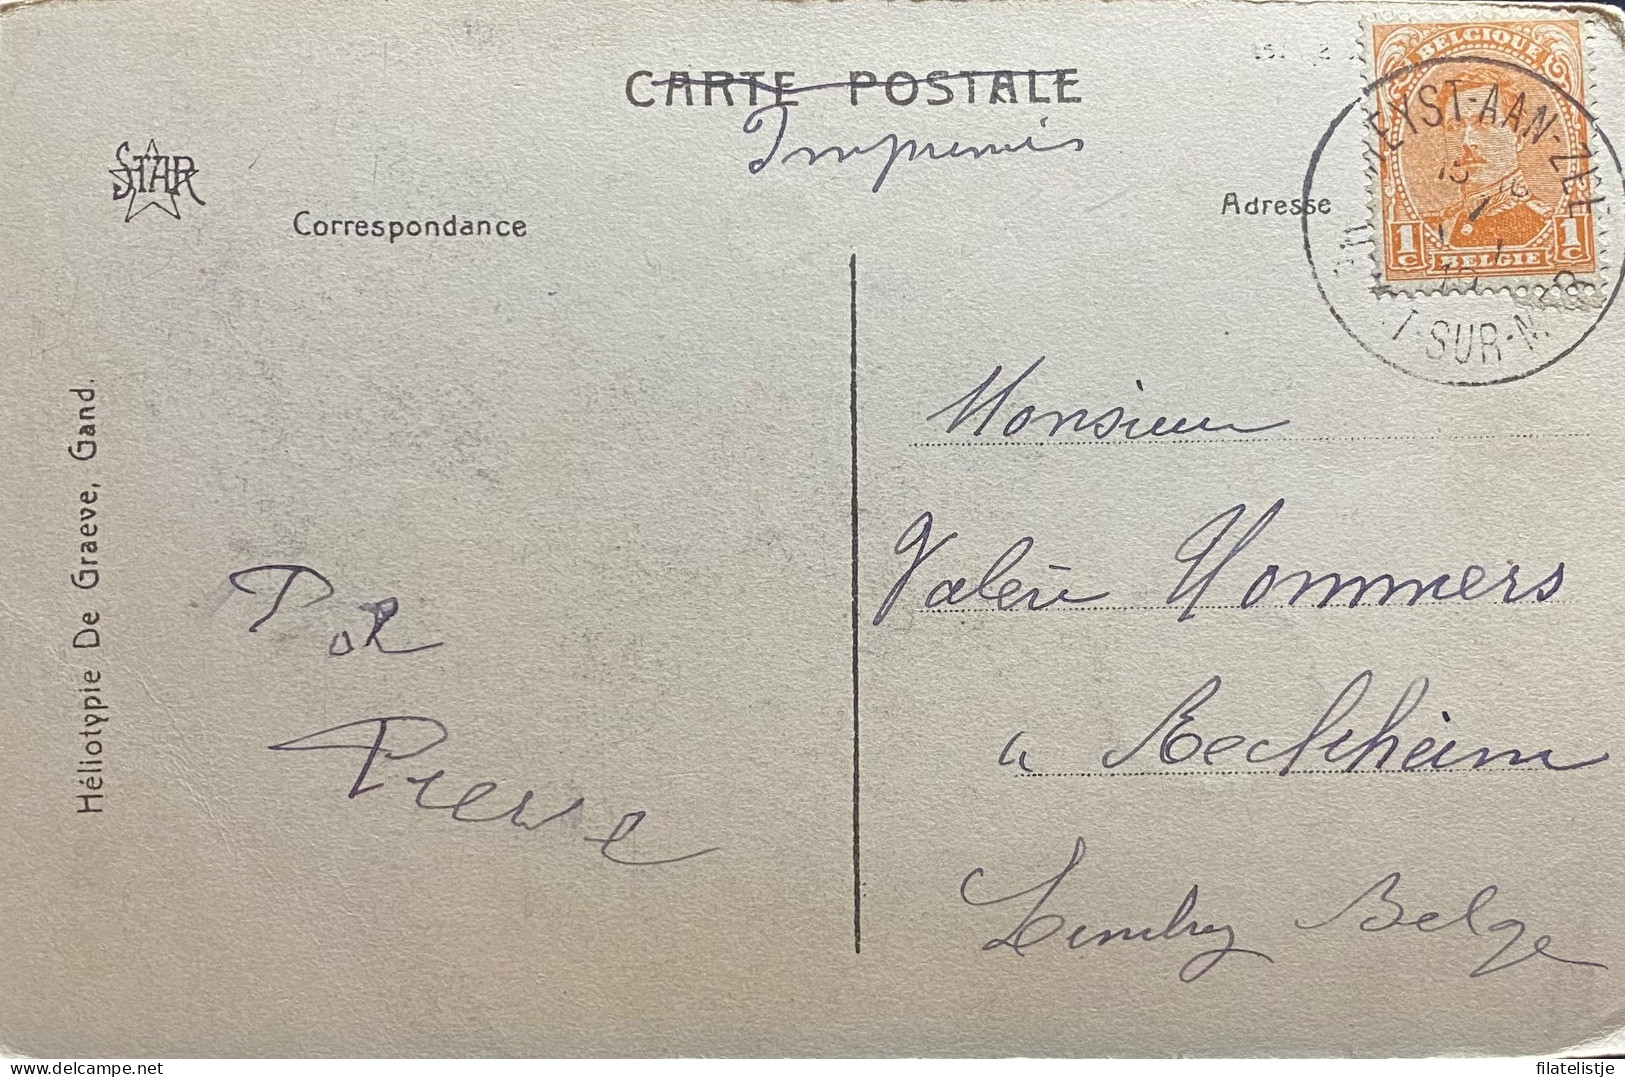 CARTE POSTALE
Imprimés
STAR
Correspondance
Adresse
BELGIQUE
1c 1c
BELGIE
HEYST-AAN-ZEE
T-SUR-MER
Héliotypie De Graeve, Gand.
Monsieur
Valère Hommers
à Reckheim
Limbg Belge
Pierre
filatelistje